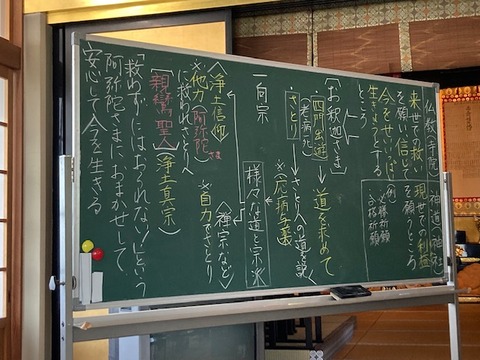 仏教(寺院)
来世での救い
を願い、信じて
今をせいいっぱい
生きようとする
ところ
神道(神社)
現世での利益
を願うところ
例
必勝祈願
合格祈願
【お釈迦さま】
四門出遊
老病死
→道を求めて
さとり→さとりへの道を説く
※応病与薬
様々な道と宗派
一向宗
〈浄土信仰〉
※他力(阿弥陀さま
に救われさとりへ)
〈禅宗など〉
※自力でさとり
【親鸞聖人】(浄土真宗)
「救わずにはおられない!」という
阿弥陀さまに、おまかせして
安心して今を生きる